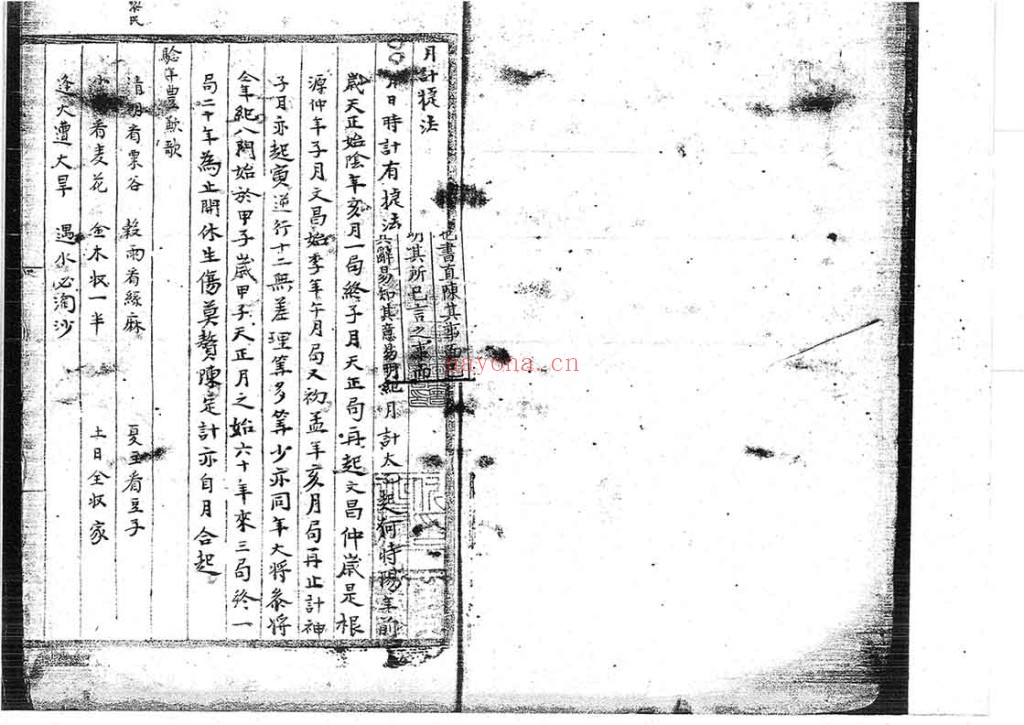 月計捷法
月日時計有捷法其辭易知其意易明紀月計太乙起何時陽年前
也書直陳其事而
明其所已言之事而
歲天正始陰年亥月一局終子月天正局再起文昌仲歲是根
源仲年子月文昌始季年午月局又初孟年亥月局再止計神
子月亦起寅逆行十二無差理筭多筭少亦同年大將參將
全年紀八門始於甲子歲甲子天正月之始六十年來三局終一
局二十年為止開休生傷莫贅陳定計亦自月合起
驗年豐歉歌
清明看粟谷 穀雨看綫麻 夏至看豆子
看麦花 金木收一半 土日全收家
逢火遭大旱 遇水必淘沙
nayona.cn